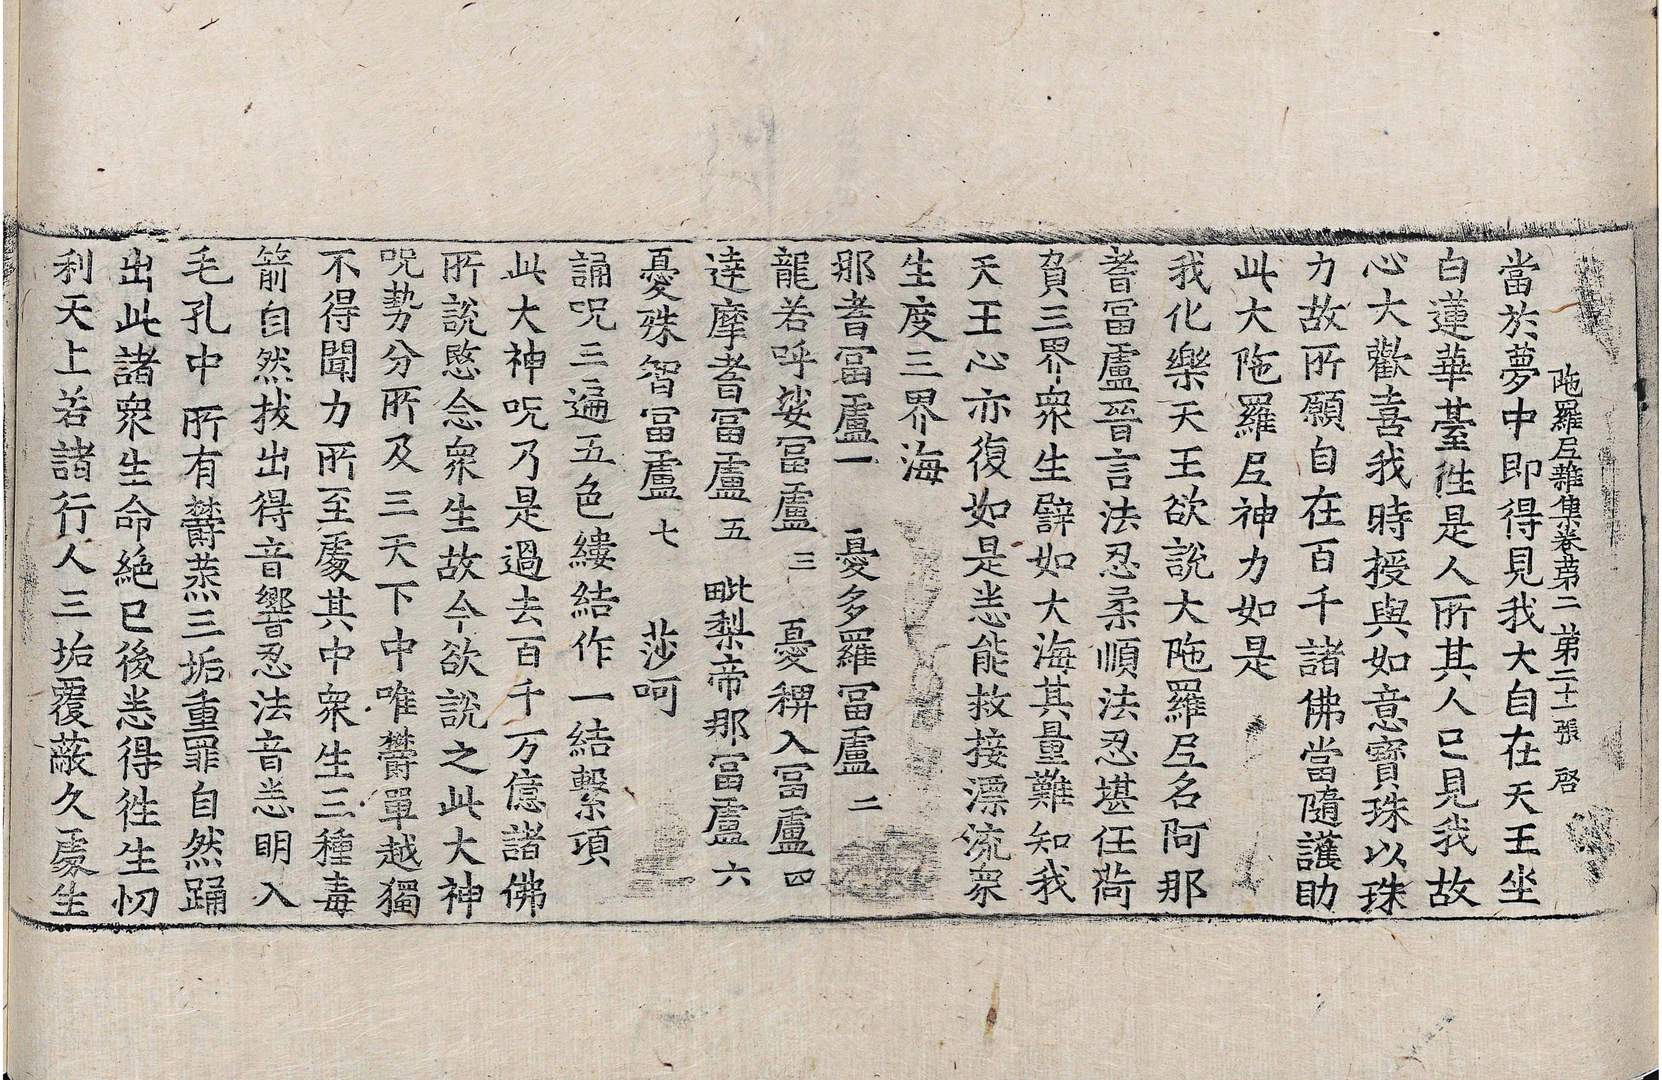 陁羅尼雜集卷第二 第二十一張 啓
當於夢中即得見我大自在天王坐
白蓮華臺徃是人所其人已見我故
心大歡喜我時授與如意寶珠以珠
力故所願自在百千諸佛當隨護助
此大陁羅尼神力如是
我化樂天王欲說大陁羅尼名阿那
耆冨盧晉言法忍柔順法忍堪任荷
負三界衆生譬如大海其量難知我
天王心亦復如是悉能救接漂流衆
生度三界海
那耆冨盧一 憂多羅冨盧二
龍若呼娑冨盧三 憂稗入冨盧四
達摩耆冨盧五 毗梨帝那冨盧六
憂殊智冨盧七 莎呵
誦呪三遍五色縷結作一結繫項
此大神呪乃是過去百千万億諸佛
所說愍念衆生故今欲說之此大神
呪勢分所及三天下中唯欝單越獨
不得聞力所至處其中衆生三種毒
箭自然拔出得音響忍法音悉明入
毛孔中所有欝蒸三垢重罪自然踊
出此諸衆生命絶已後悉得徃生忉
利天上若諸行人三垢覆蔽久處生